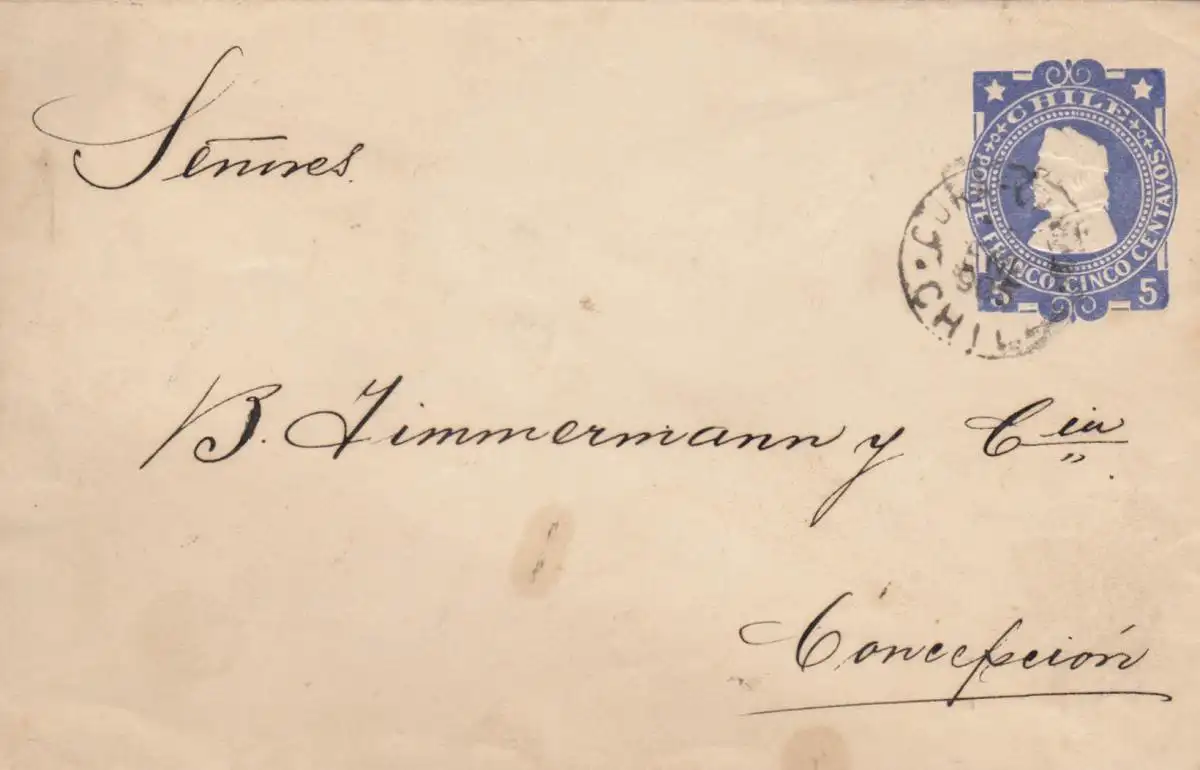 Señores
CHILE
PORTE FRANCO CINCO CENTAVOS
5 5
B. Zimmermann y Cia.
Concepción